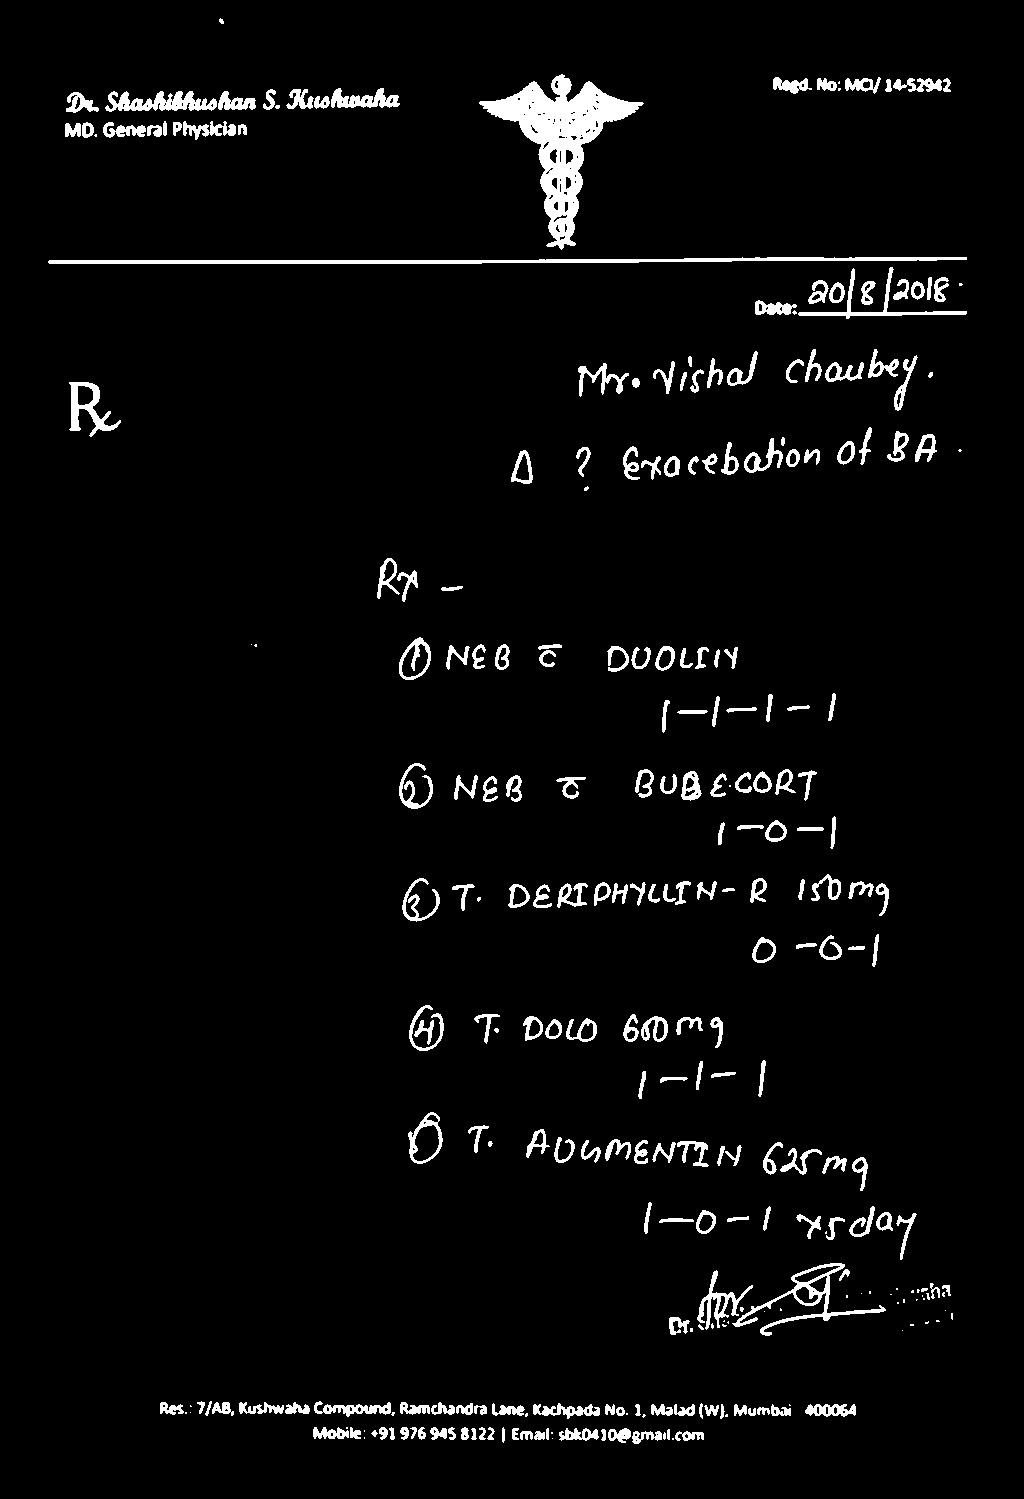 Dr. Shashibhushan S. Kushwaha
MD. General Physician
Regd. No: MCI/ 14-52942
Date: 20/8/2018
Rx
Mr. Vishal Chaubey.
Δ ? Exacebation of BA.
Rx -
① NEB c̅ DUOLIN
1-1-1-1
② NEB c̅ BUDECORT
1-0-1
③ T. DERIPHYLLIN-R 150mg
0-0-1
④ T. DOLO 650mg
1-1-1
⑤ T. AUGMENTIN 625mg
1-0-1 x5day
Dr.
Res.: 7/AB, Kushwaha Compound, Ramchandra Lane, Kachpada No. 1, Malad (W), Mumbai 400064
Mobile: +91 976 945 8122 | Email: sbk0410@gmail.com